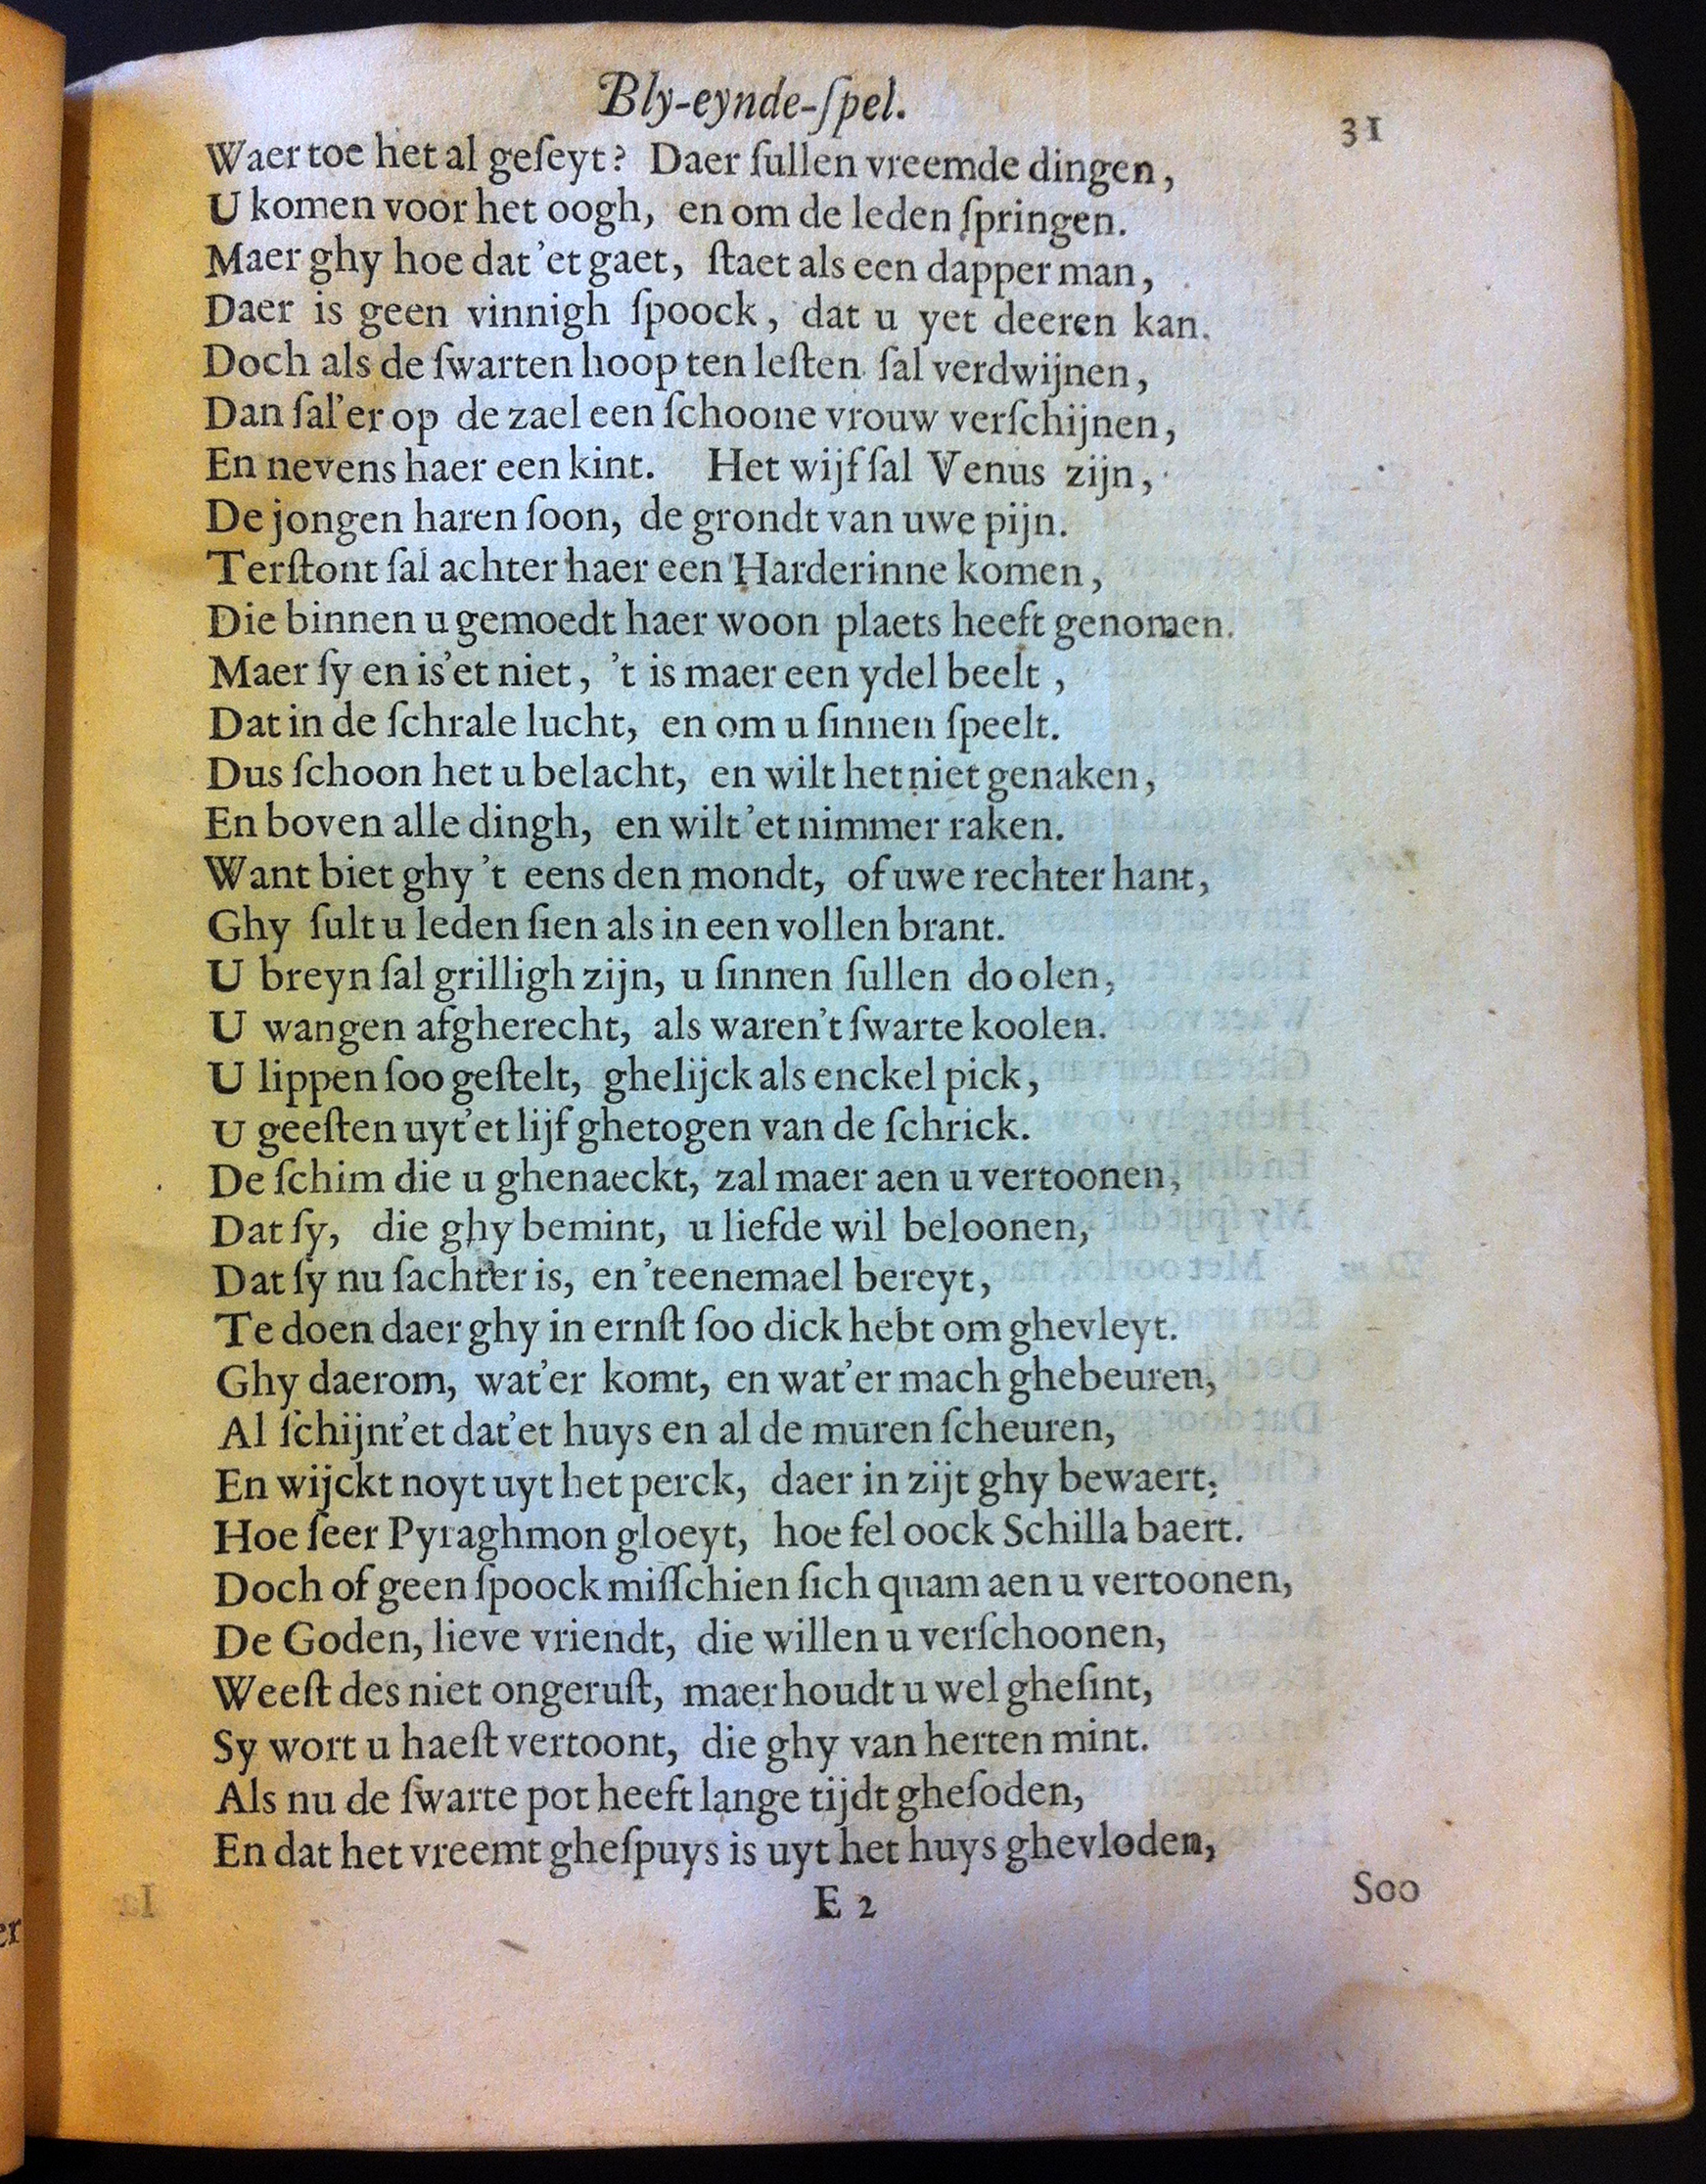 Bly-eynde-ſpel.
31
Waer toe het al geſeyt? Daer ſullen vreemde dingen,
U komen voor het oogh, en om de leden ſpringen.
Maer ghy hoe dat'et gaet, ſtaet als een dapper man,
Daer is geen vinnigh ſpoock, dat u yet deeren kan.
Doch als de ſwarten hoop ten leſten ſal verdwijnen,
Dan ſal'er op de zael een ſchoone vrouw verſchijnen,
En nevens haer een kint. Het wijf ſal Venus zijn,
De jongen haren ſoon, de grondt van uwe pijn.
Terſtont ſal achter haer een Harderinne komen,
Die binnen u gemoedt haer woon plaets heeft genomen.
Maer ſy en is'et niet, 't is maer een ydel beelt,
Dat in de ſchrale lucht, en om u ſinnen ſpeelt.
Dus ſchoon het u belacht, en wilt het niet genaken,
En boven alle dingh, en wilt'et nimmer raken.
Want biet ghy 't eens den mondt, of uwe rechter hant,
Ghy ſult u leden ſien als in een vollen brant.
U breyn ſal grilligh zijn, u ſinnen ſullen doolen,
U wangen afgherecht, als waren't ſwarte koolen.
U lippen ſoo geſtelt, ghelijck als enckel pick,
U geeſten uyt'et lijf ghetogen van de ſchrick.
De ſchim die u ghenaeckt, zal maer aen u vertoonen,
Dat ſy, die ghy bemint, u liefde wil beloonen,
Dat ſy nu ſachter is, en 'teenemael bereyt,
Te doen daer ghy in ernſt ſoo dick hebt om ghevleyt.
Ghy daerom, wat'er komt, en wat'er mach ghebeuren,
Al ſchijnt'et dat'et huys en al de muren ſcheuren,
En wijckt noyt uyt het perck, daer in zijt ghy bewaert;
Hoe ſeer Pyraghmon gloeyt, hoe fel oock Schilla baert.
Doch of geen ſpoock miſſchien ſich quam aen u vertoonen,
De Goden, lieve vriendt, die willen u verſchoonen,
Weeſt des niet ongeruſt, maer houdt u wel gheſint,
Sy wort u haeſt vertoont, die ghy van herten mint.
Als nu de ſwarte pot heeft lange tijdt gheſoden,
En dat het vreemt gheſpuys is uyt het huys ghevloden,
E 2
Soo
er